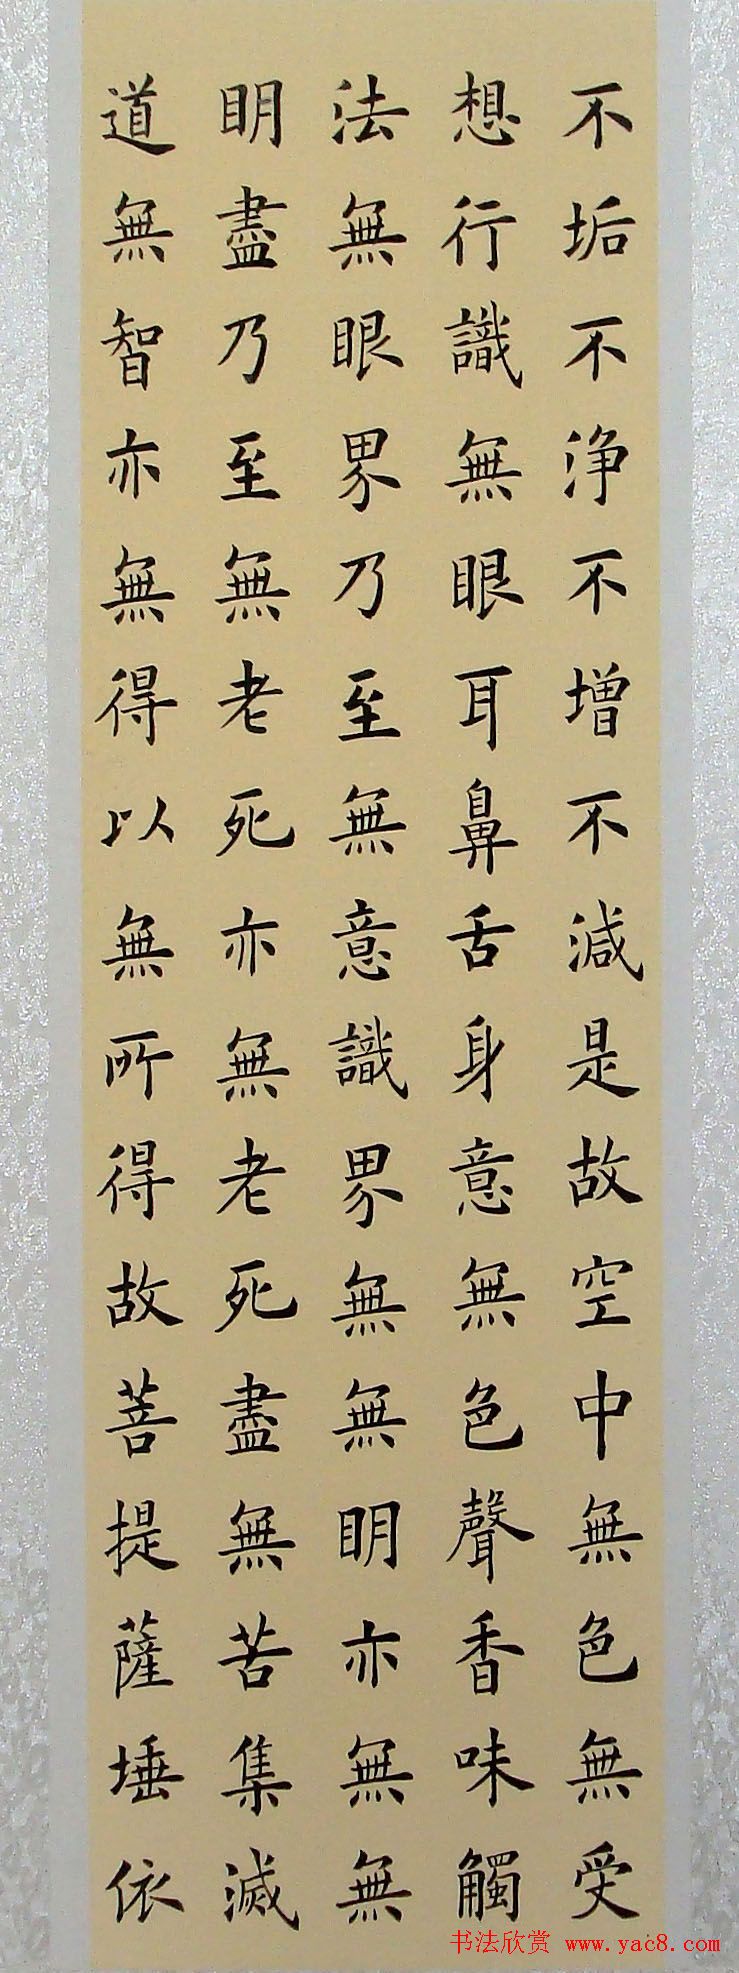 不垢不淨不增不減是故空中無色無受
想行識無眼耳鼻舌身意無色聲香味觸
法無眼界乃至無意識界無無明亦無無
明盡乃至無老死亦無老死盡無苦集滅
道無智亦無得以無所得故菩提薩埵依
书法欣赏 www.yac8.com